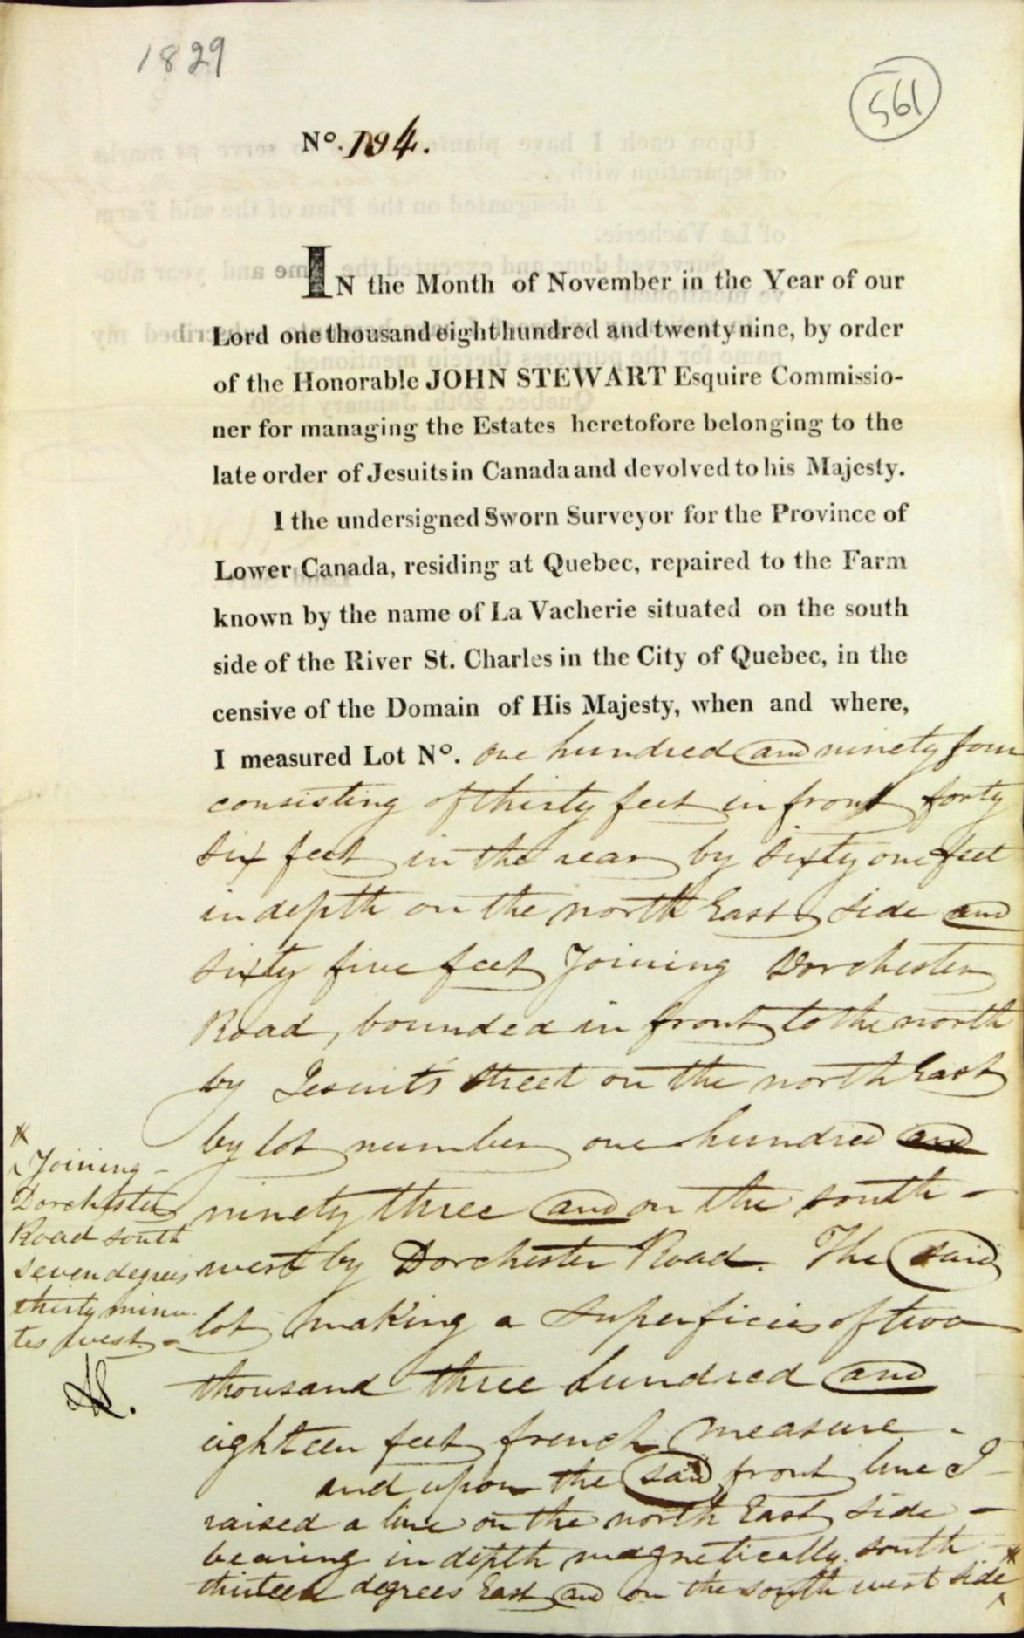 1829
561
No. 194.
IN the Month of November in the Year of our
Lord one thousand eight hundred and twenty nine, by order
of the Honorable JOHN STEWART Esquire Commissio-
ner for managing the Estates heretofore belonging to the
late order of Jesuits in Canada and devolved to his Majesty.
I the undersigned Sworn Surveyor for the Province of
Lower Canada, residing at Quebec, repaired to the Farm
known by the name of La Vacherie situated on the south
side of the River St. Charles in the City of Quebec, in the
censive of the Domain of His Majesty, when and where,
I measured Lot No. one hundred and ninety four
consisting of thirty feet in front forty
six feet in the rear by sixty one feet
in depth on the north East side and
sixty five feet Joining Dorchester
Road, bounded in front to the north
by Jesuit's street on the north East
by lot number one hundred and
ninety three and on the south -
west by Dorchester Road. The said
lot making a superficies of two
thousand three hundred and
eighteen feet french measure -
and upon the said front line I -
raised a line on the north East side -
bearing in depth magnetically south -
thirteen degrees East and on the south west side *
* Joining -
Dorchester
Road south
seven degrees
thirty minu-
tes west -